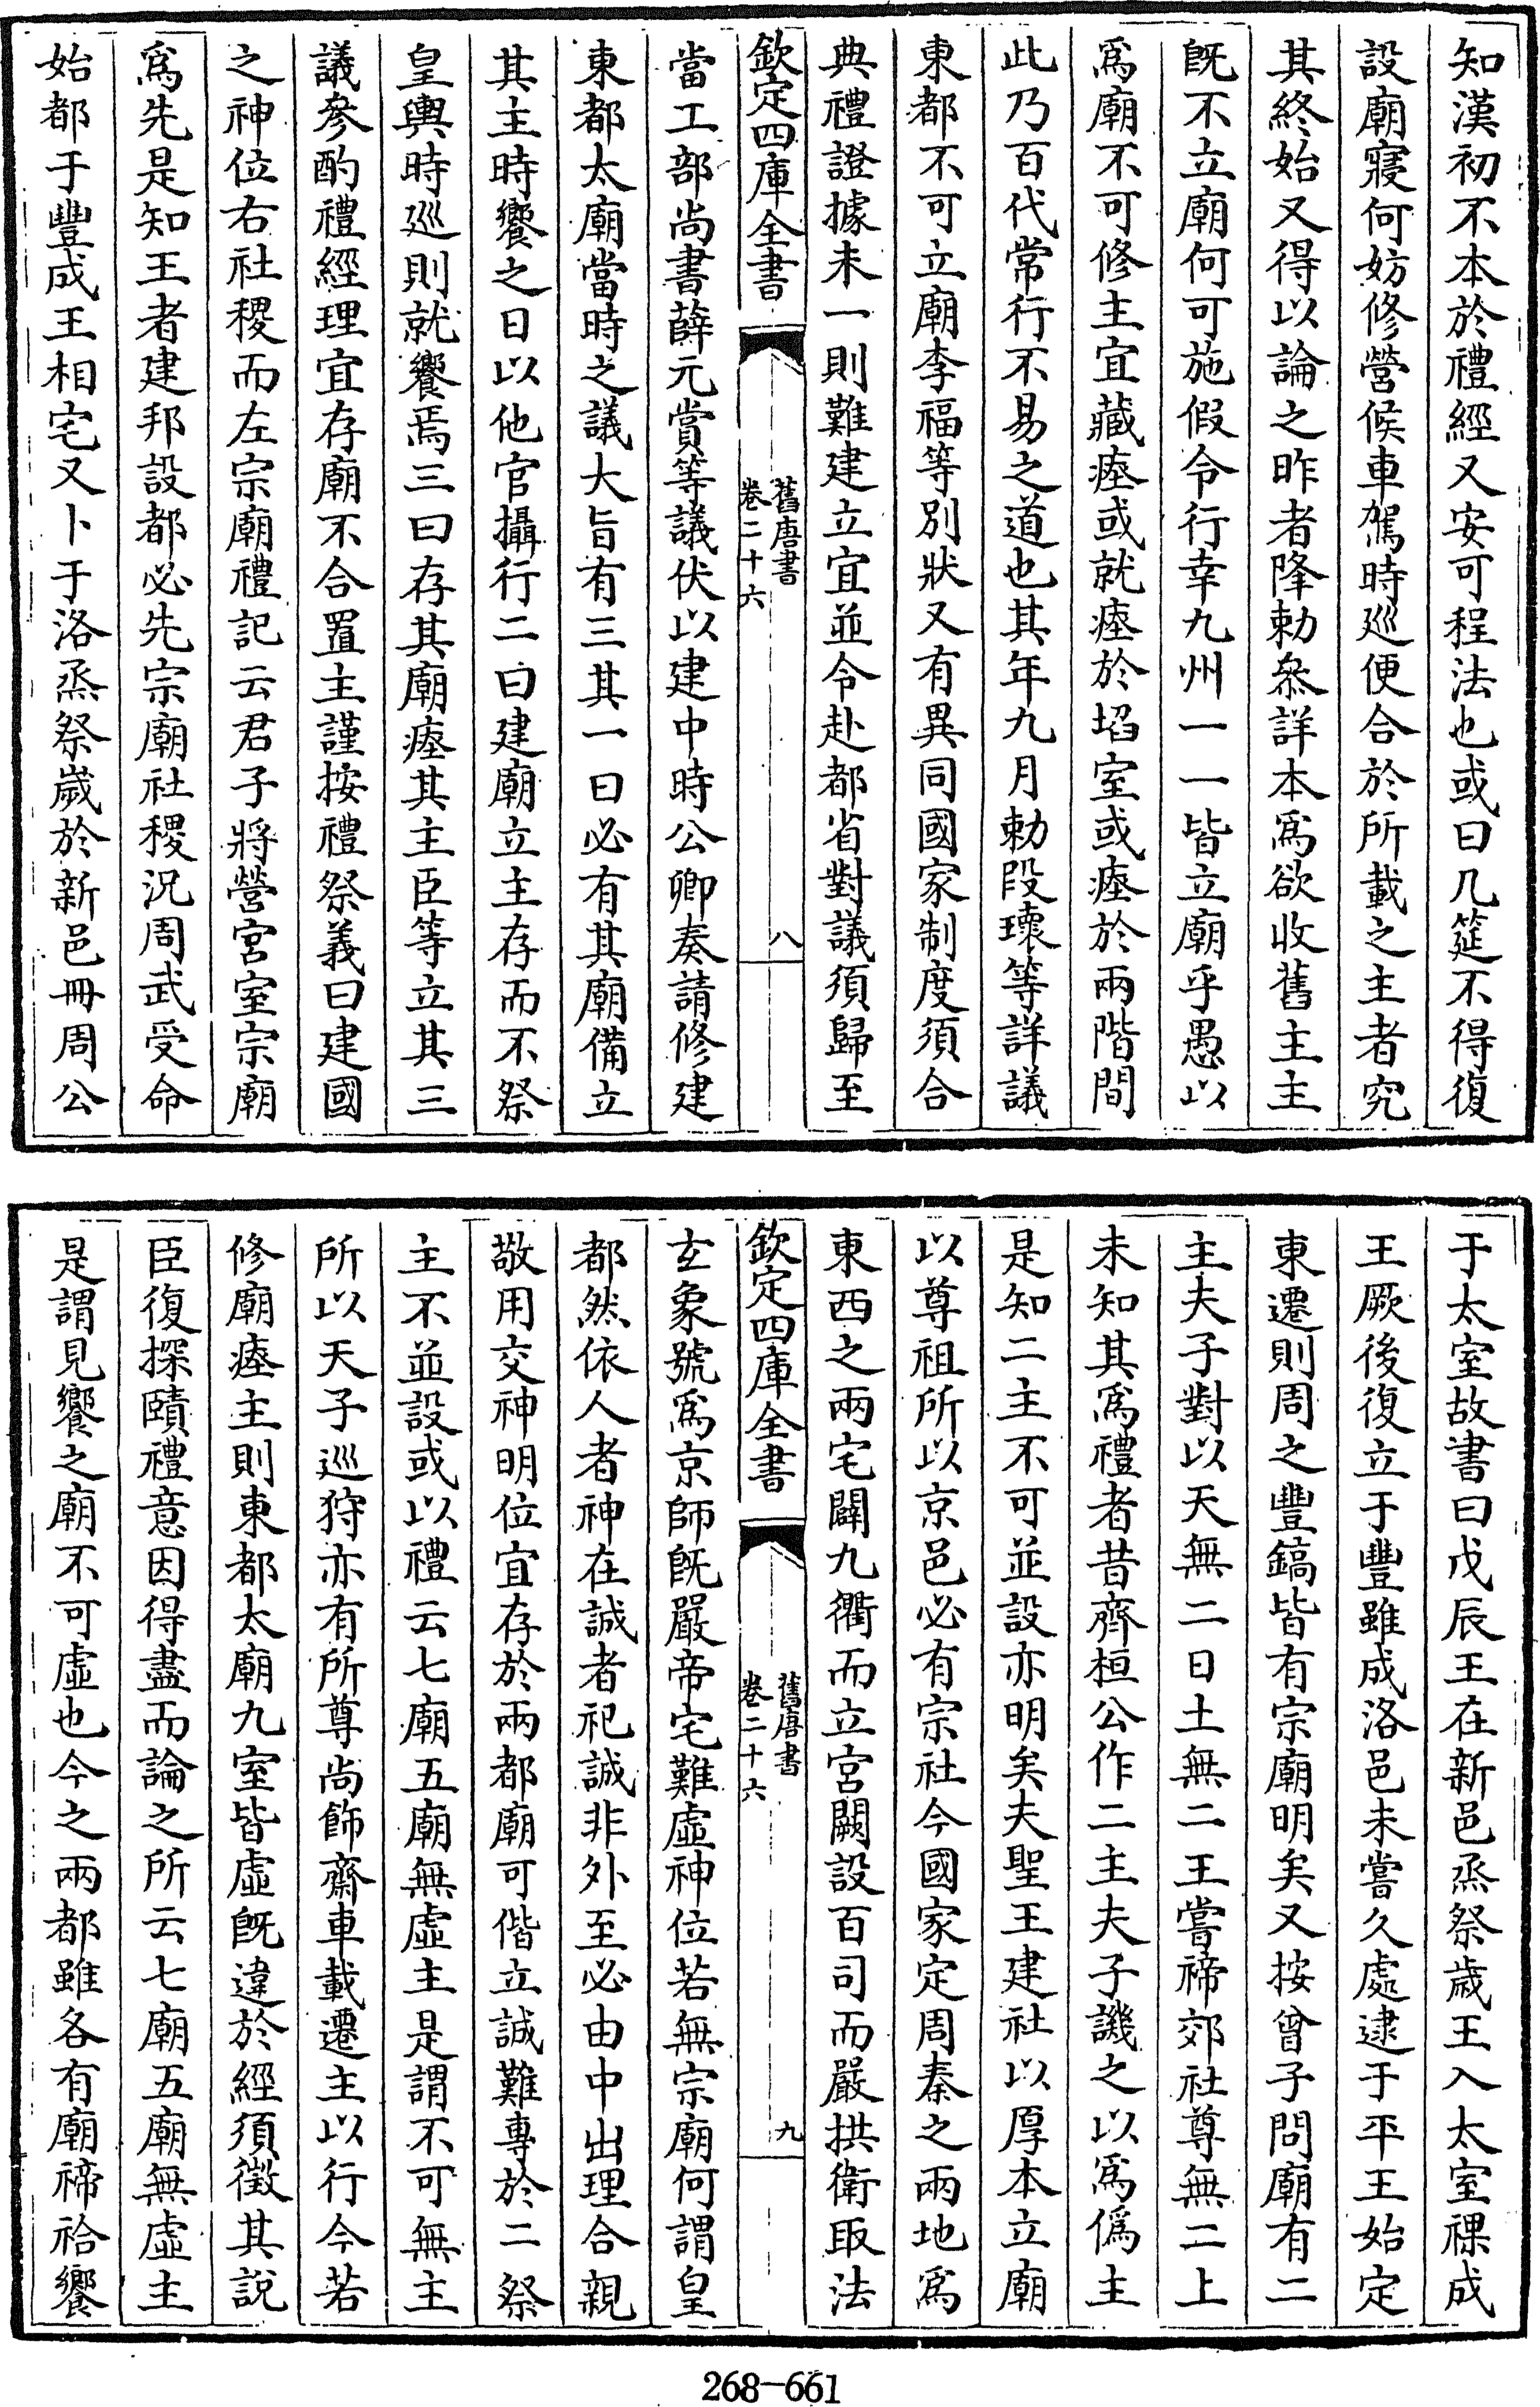 知漢初不本於禮經又安可程法也或曰几筵不得復
設廟寢何妨修營候車駕時巡便合於所載之主者究
其終始又得以論之昨者降勅叅詳本爲欲收舊主主
旣不立廟何可施假令行幸九州一一皆立廟乎愚以
爲廟不可修主宜藏瘞或就瘞於埳室或瘞於兩階間
此乃百代常行不易之道也其年九月勅段瓌等詳議
東都不可立廟李福等別狀又有異同國家制度須合
典禮證據未一則難建立宜並令赴都省對議須歸至
欽定四庫全書
舊唐書
卷二十六
八
當工部尚書薛元賞等議伏以建中時公卿奏請修建
東都太廟當時之議大旨有三其一曰必有其廟備立
其主時饗之日以他官攝行二曰建廟立主存而不祭
皇輿時巡則就饗焉三曰存其廟瘞其主臣等立其三
議參酌禮經理宜存廟不合置主謹按禮祭義曰建國
之神位右社稷而左宗廟禮記云君子將營宮室宗廟
爲先是知王者建邦設都必先宗廟社稷況周武受命
始都于豐成王相宅又卜于洛烝祭歲於新邑冊周公
于太室故書曰戊辰王在新邑烝祭歲王入太室祼成
王厥後復立于豐雖成洛邑未嘗久處逮于平王始定
東遷則周之豐鎬皆有宗廟明矣又按曾子問廟有二
主夫子對以天無二日土無二王嘗禘郊社尊無二上
未知其爲禮者昔齊桓公作二主夫子譏之以爲僞主
是知二主不可並設亦明矣夫聖王建社以厚本立廟
以尊祖所以京邑必有宗社今國家定周秦之兩地爲
東西之兩宅闢九衢而立宮闕設百司而嚴拱衛取法
欽定四庫全書
舊唐書
卷二十六
九
玄象號爲京師旣嚴帝宅難虛神位若無宗廟何謂皇
都然依人者神在誠者祀誠非外至必由中出理合親
敬用交神明位宜存於兩都廟可偕立誠難專於二祭
主不並設或以禮云七廟五廟無虛主是謂不可無主
所以天子巡狩亦有所尊尚飾齋車載遷主以行今若
修廟瘞主則東都太廟九室皆虛旣違於經須徵其說
臣復探賾禮意因得盡而論之所云七廟五廟無虛主
是謂見饗之廟不可虛也今之兩都雖各有廟禘祫饗
268-661